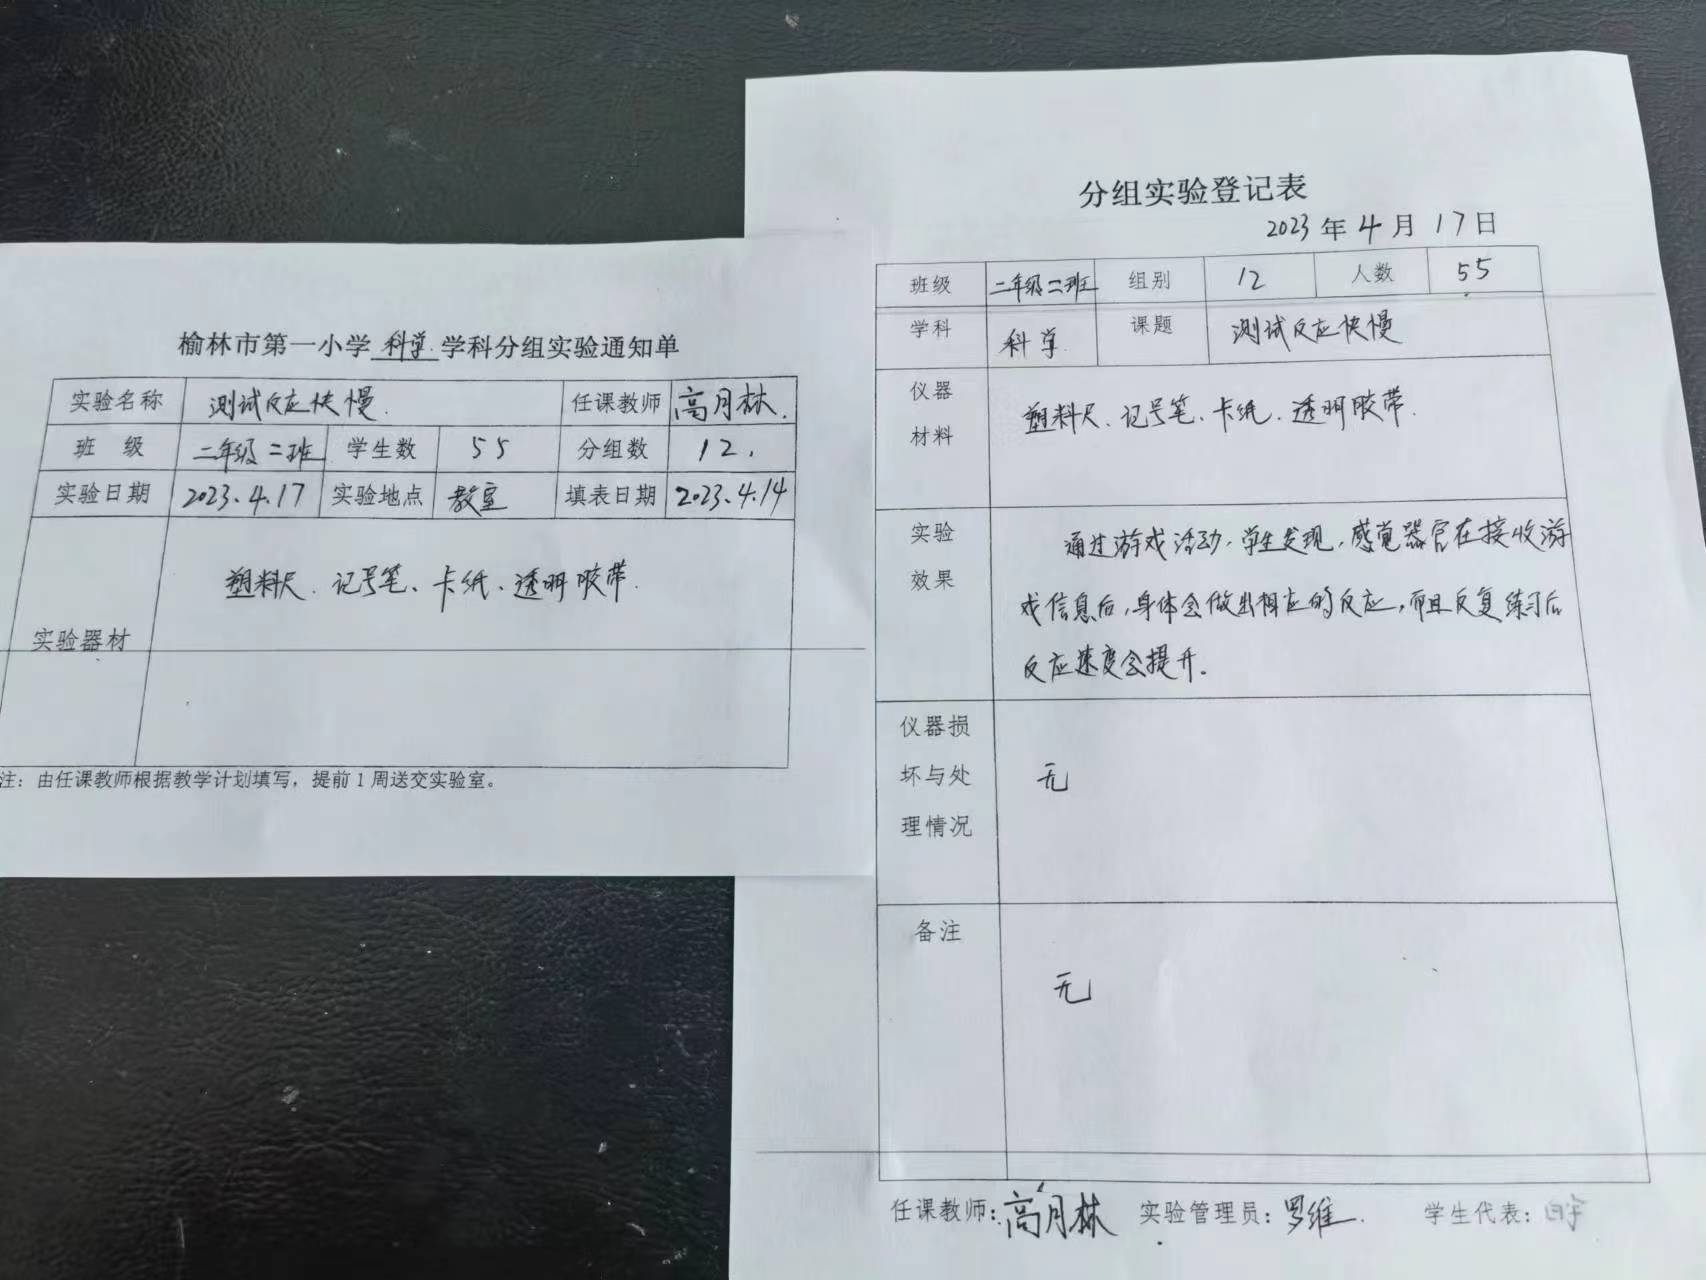 榆林市第一小学 科学 学科分组实验通知单
实验名称 测试反应快慢. 任课教师 高月林.
班 级 二年级二班 学生数 55 分组数 12.
实验日期 2023.4.17 实验地点 教室 填表日期 2023.4.14
实验器材 塑料尺、记号笔、卡纸、透明胶带.
注：由任课教师根据教学计划填写，提前1周送交实验室。
分组实验登记表
2023 年 4 月 17 日
班级 二年级二班 组别 12 人数 55
学科 科学 课题 测试反应快慢
仪器
材料
塑料尺、记号笔、卡纸、透明胶带.
实验
效果
通过游戏活动，学生发现，感觉器官在接收游
戏信息后，身体会做出相应的反应，而且反复练习后
反应速度会提升.
仪器损
坏与处
理情况
无
备注
无
任课教师：高月林 实验管理员：罗维. 学生代表：